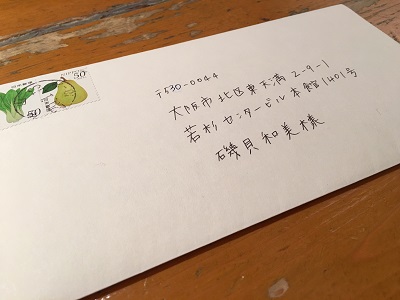 〒530-0044
大阪市北区東天満2-9-1
若杉センタービル本館1401号
磯貝和美様
50